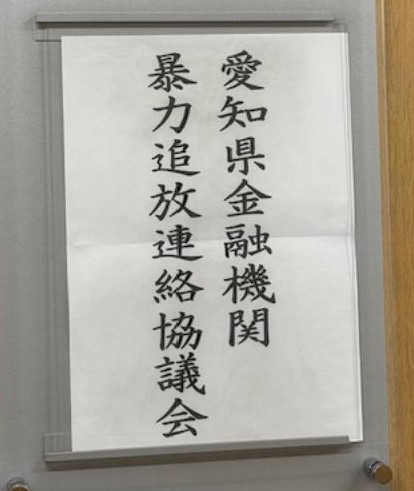 愛知県金融機関
暴力追放連絡協議会